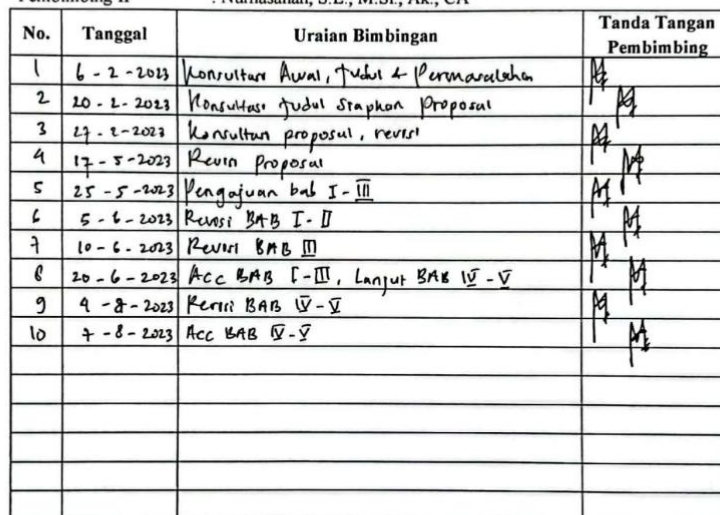 : Nurhasanah, S.E., M.Si., Ak., CA
No. Tanggal Uraian Bimbingan Tanda Tangan Pembimbing
1 6 - 2 - 2023 Konsultasi Awal, Judul & Permasalahan
2 20 - 2 - 2023 Konsultasi Judul Siapkan Proposal
3 27 - 2 - 2023 Konsultasi proposal, revisi
4 17 - 5 - 2023 Revisi Proposal
5 25 - 5 - 2023 Pengajuan bab I - III
6 5 - 6 - 2023 Revisi BAB I - II
7 10 - 6 - 2023 Revisi BAB III
8 20 - 6 - 2023 Acc BAB I - III, Lanjut BAB IV - V
9 4 - 8 - 2023 Revisi BAB IV - V
10 7 - 8 - 2023 Acc BAB IV - V